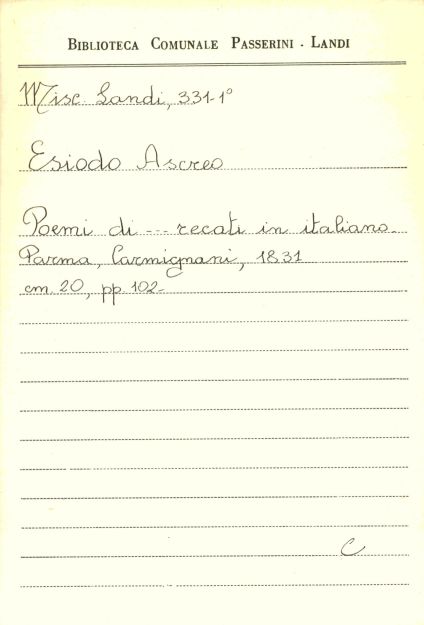 BIBLIOTECA COMUNALE PASSERINI - LANDI
Misc. Landi, 331-1°
Esiodo Ascreo
Poemi di --- recati in italiano.
Parma, Carmignani, 1831
cm. 20, pp. 102-
C